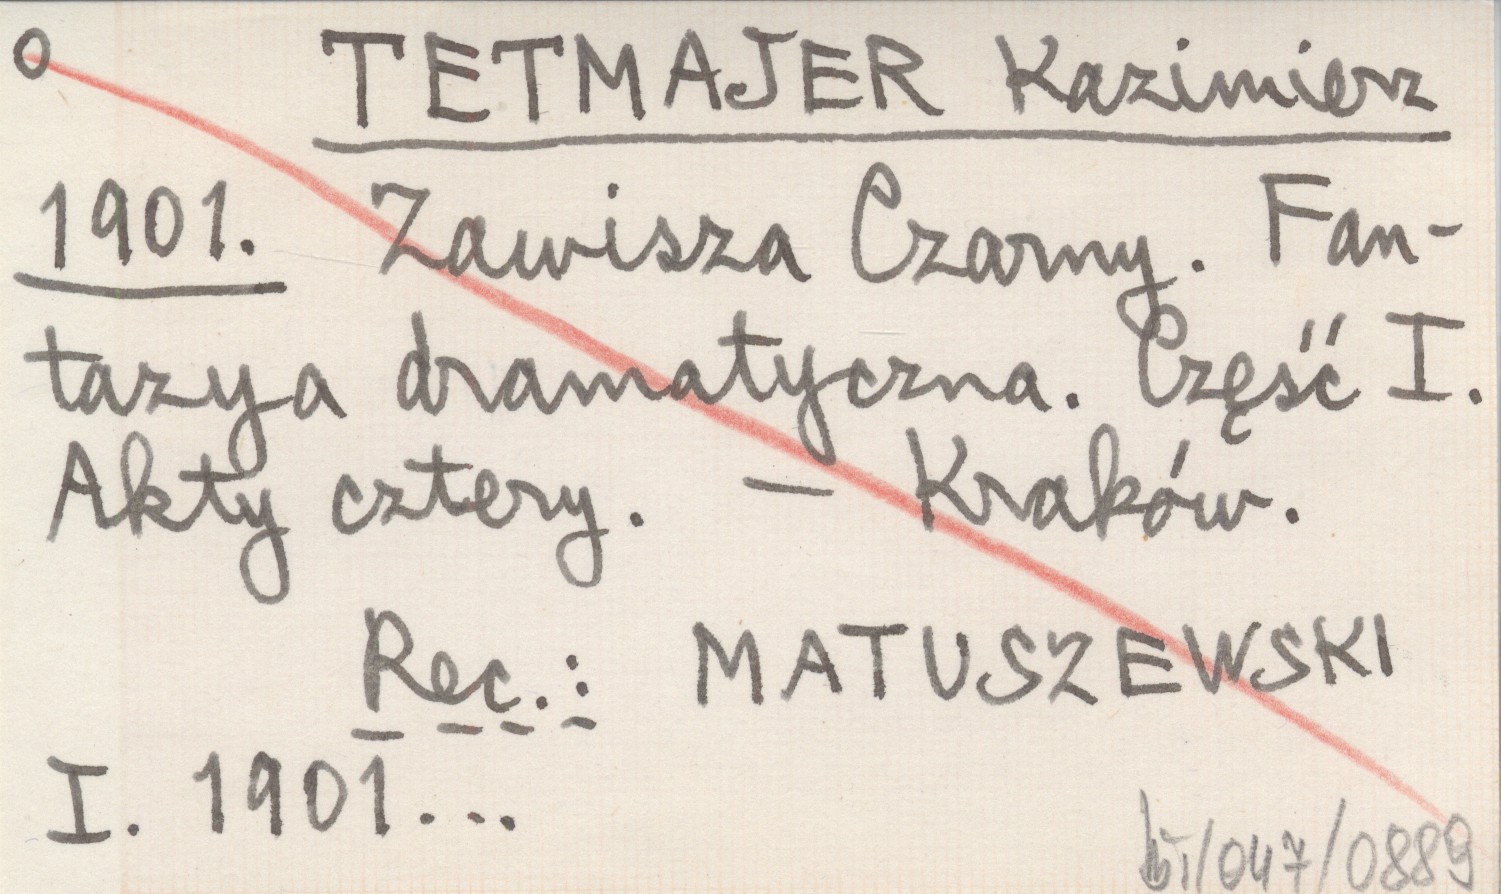 O TETMAJER Kazimierz
1901. Zawisza Czarny. Fan-
tazya dramatyczna. Część I.
Akty cztery. — Kraków.
Rec.: MATUSZEWSKI
I. 1901...
/047/0889